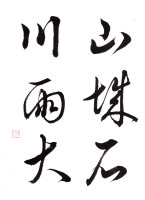 山石
川雨大